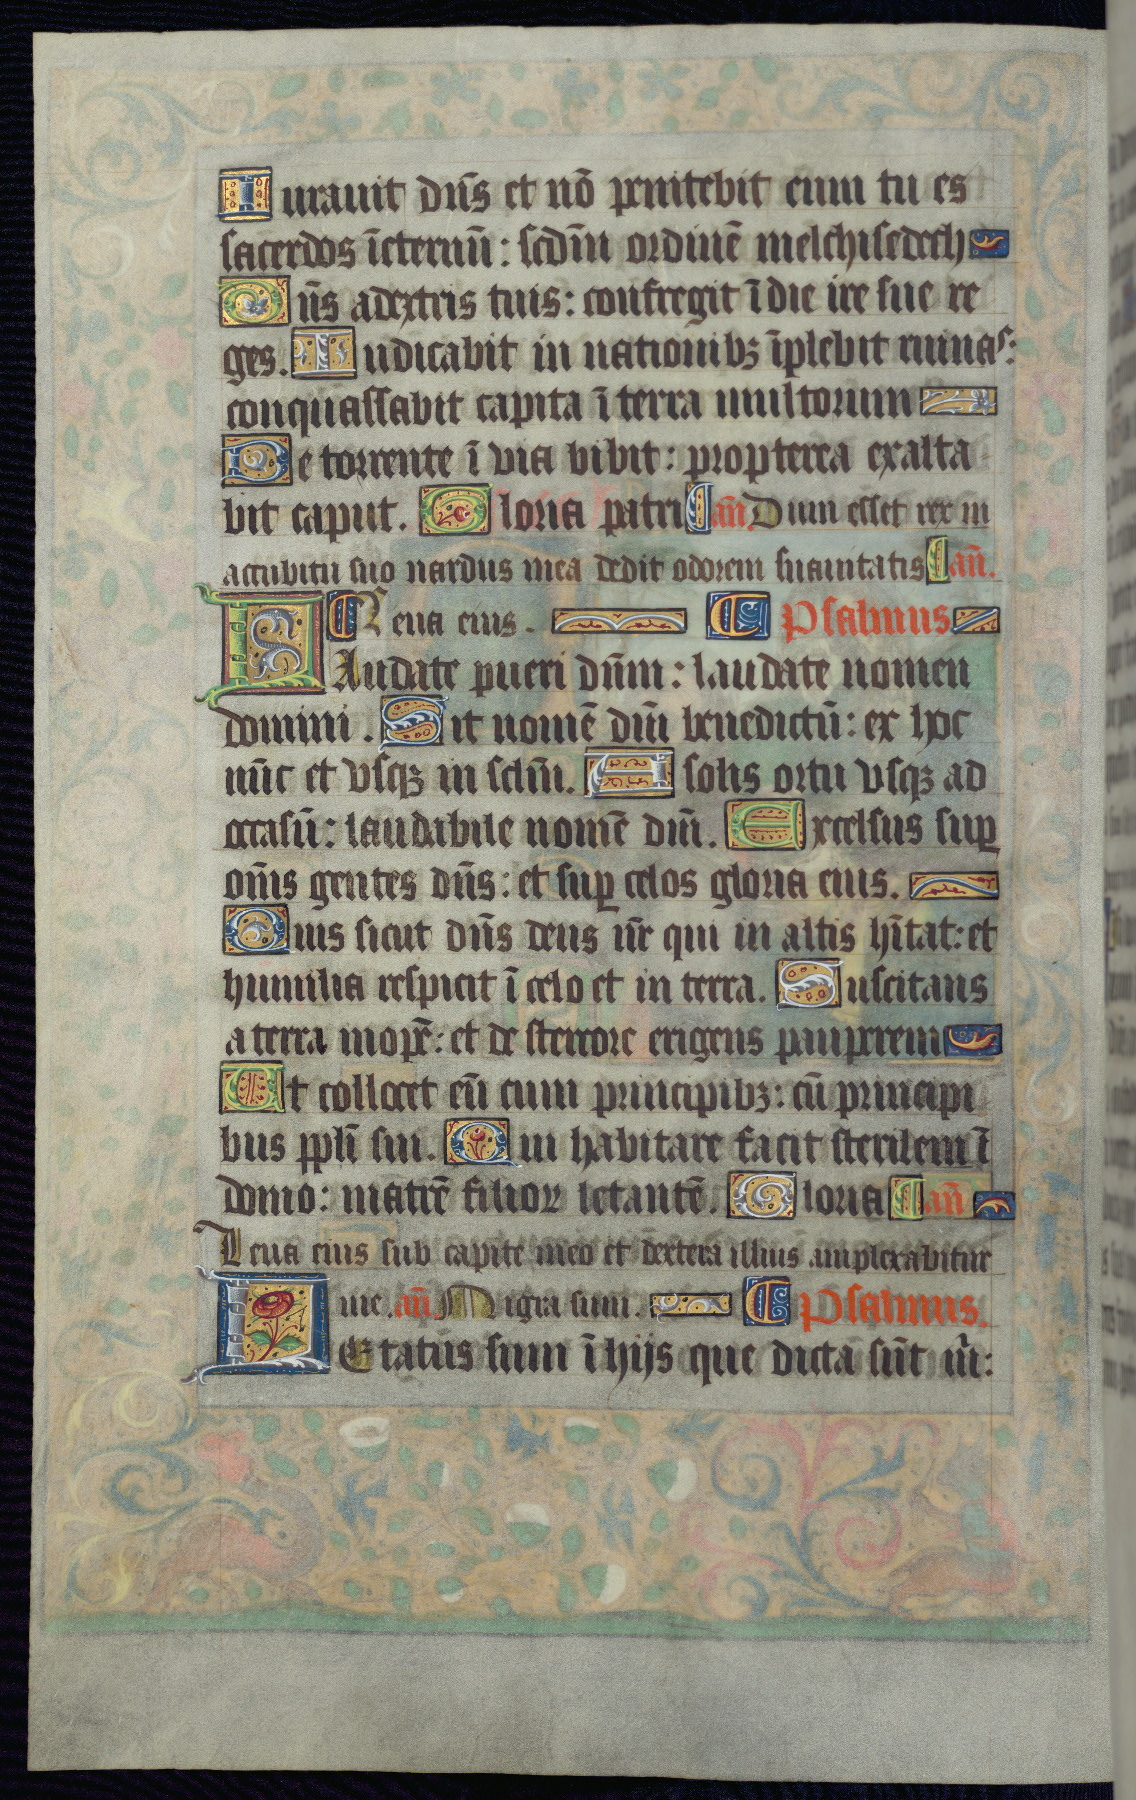 Iurauit dn̄s et nō penitebit eum tu es
sacerdos īeternū: scdm̄ ordinē melchisedech
Dn̄s adextris tuis: confregit ī die ire sue re
ges. Iudicabit in nationibꝫ īplebit ruinas:
conquassabit capita ī terra multorum
De torrente ī via bibit: propterea exalta
bit caput. Gloria patri an̄ Dum esset rex in
accubitu suo nardus mea dedit odorem suauitatis an̄.
Leua eius. Psalmus
LAudate pueri dn̄m: laudate nomen
domini. Sit nomē dn̄i benedictū: ex hoc
nūc et vsqꝫ in sclm̄. A solis ortu vsqꝫ ad
occasū: laudabile nomē dn̄i. Excelsus suꝑ
om̄s gentes dn̄s: et suꝑ celos gloria eius.
Quis sicut dn̄s deus nr̄ qui in altis hītat: et
humilia respicit ī celo et in terra. Suscitans
a terra inopē: et de stercore erigens pauperem
Ut collocet eū cum principibꝫ: cū principi
bus ppli̅ sui. Qui habitare facit sterilem ī
domo: matrē filioꝝ letantē. Gloria an̄
Leua eius sub capite meo et dextera illius amplexabitur
me. an̄ Nigra sum. Psalmus.
LEtatus sum ī hijs que dicta sūt m̄: